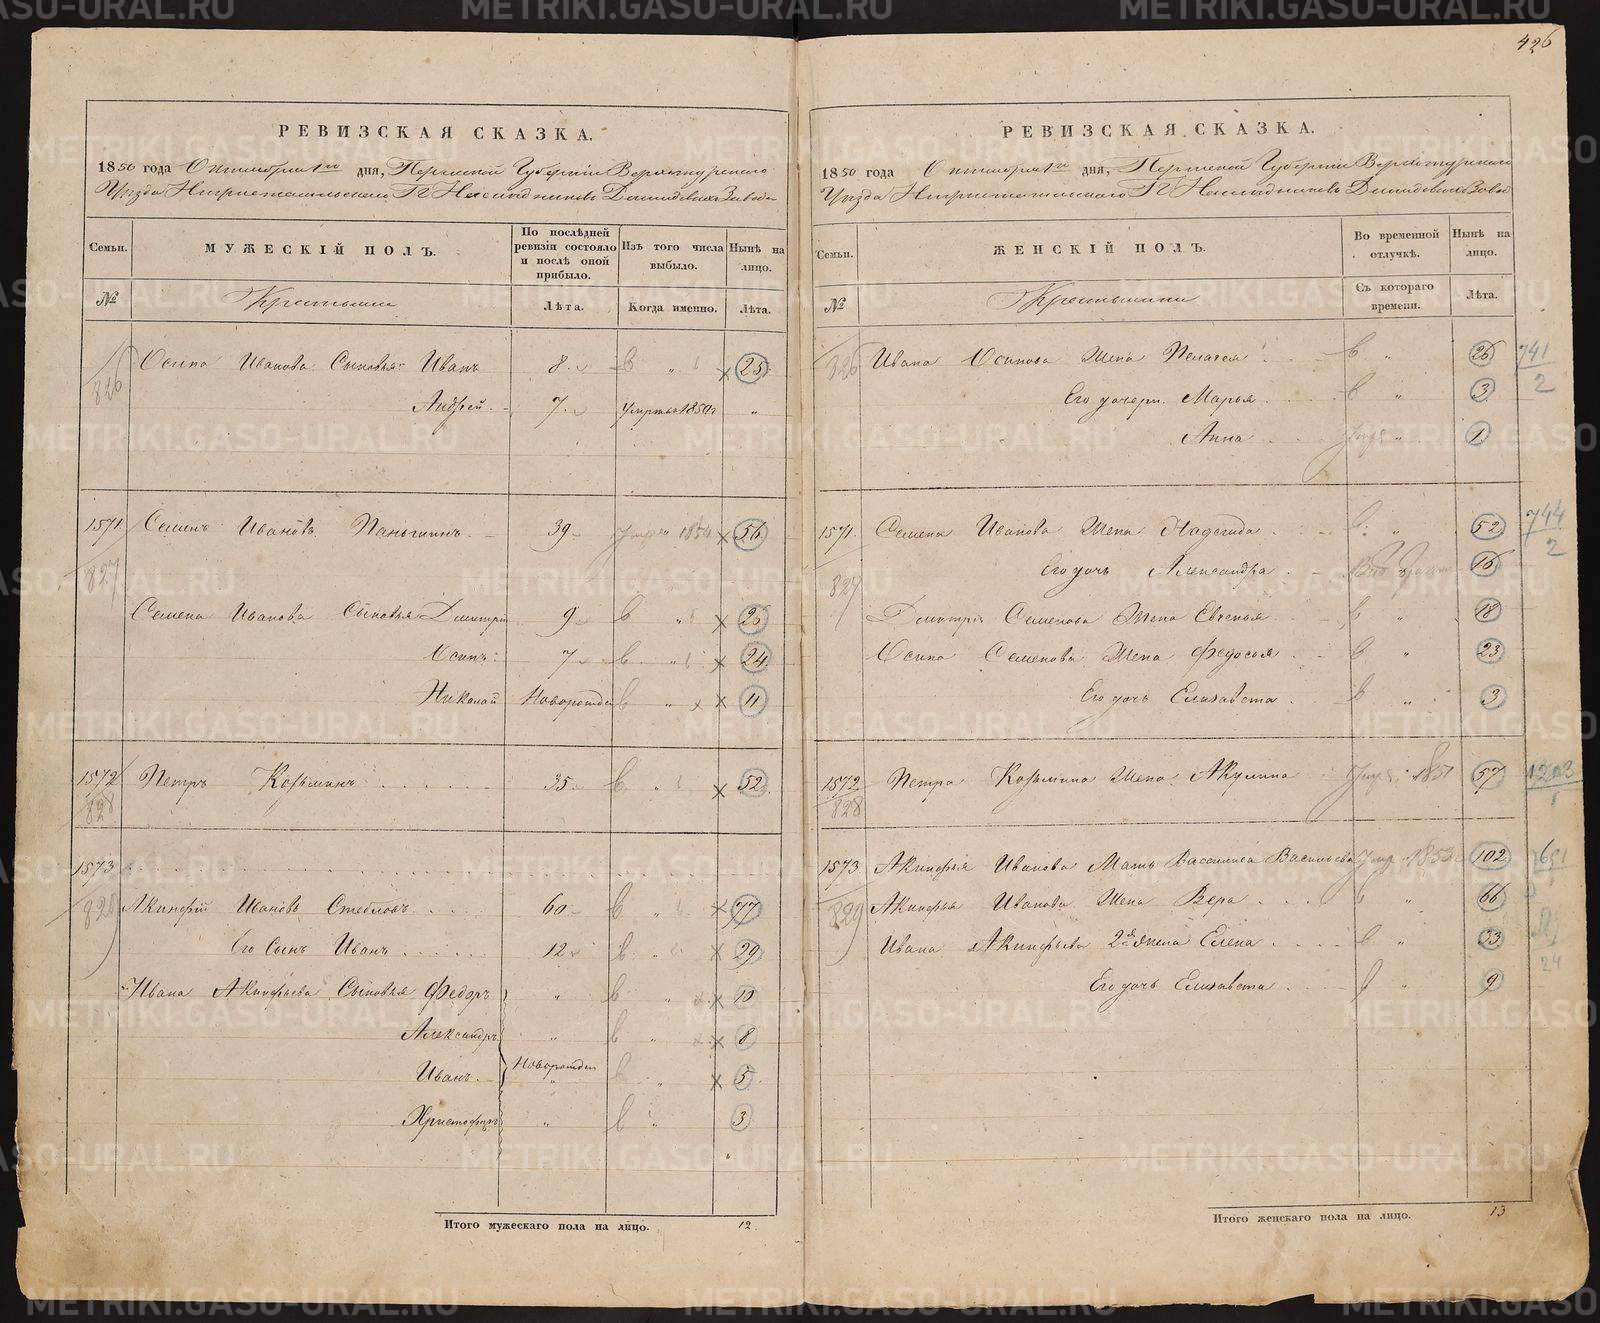 426
РЕВИЗСКАЯ СКАЗКА.
1850 года Октября 1го дня, Пермской Губерніи Верхотурскаго
Уѣзда Нижнетагильскаго Гг Наслѣдниковъ Демидовыхъ Завода
Семьи.
МУЖЕСКІЙ ПОЛЪ.
По послѣдней ревизіи состояло и послѣ оной прибыло.
Изъ того числа выбыло.
Нынѣ на лицо.
№
Крестьяне
Лѣта.
Когда именно.
Лѣта.
826 Осипа Иванова Сыновья: Иванъ 8. 25
Андрей 7. умръ въ 1850г "
1571 Семенъ Ивановъ Паньшинъ 39 1854 56
827
Семена Иванова Сыновья Дмитрій 9 26
Осипъ: 7 24
Николай Новорожден 11
1572 Петръ Козьминъ 35 52
828
1573
829 Акинфій Ивановъ Стебловъ 60 77
Его Сынъ Иванъ 12 29
Ивана Акинфьева Сыновья Федоръ " 10
Александръ " 8
Иванъ Новорожден 5
Христофоръ " 3
Итого мужескаго пола на лицо. 12
РЕВИЗСКАЯ СКАЗКА.
1850 года Октября 1го дня, Пермской Губерніи Верхотурскаго
Уѣзда Нижнетагильскаго Гг Наслѣдниковъ Демидовыхъ Завод
Семьи.
ЖЕНСКІЙ ПОЛЪ.
Во временной отлучкѣ.
Нынѣ на лицо.
№
Крестьянки
Съ котораго времени.
Лѣта.
826 Ивана Осипова Жена Пелагея " 26 741
Его дочери Марья " 3 2
Анна " 1
1571. Семена Иванова Жена Надежда " 52 744
827 Его дочь Александра 16 2
Дмитрія Семенова Жена Евгенья " 18
Осипа Семенова Жена Федосья " 23
Его дочь Елизавета " 3
1572 Петра Козьмина Жена Акулина 1851 57 1203
828 1
1573. Акинфья Иванова Мать Василиса Васильева 1853 102 761
829 Акинфья Иванова Жена Вера " 66
Ивана Акинфьева 2я жена Елена " 33
24
Его дочь Елизавета " 9
Итого женскаго пола на лицо. 13
METRIKI.GASO-URAL.RU